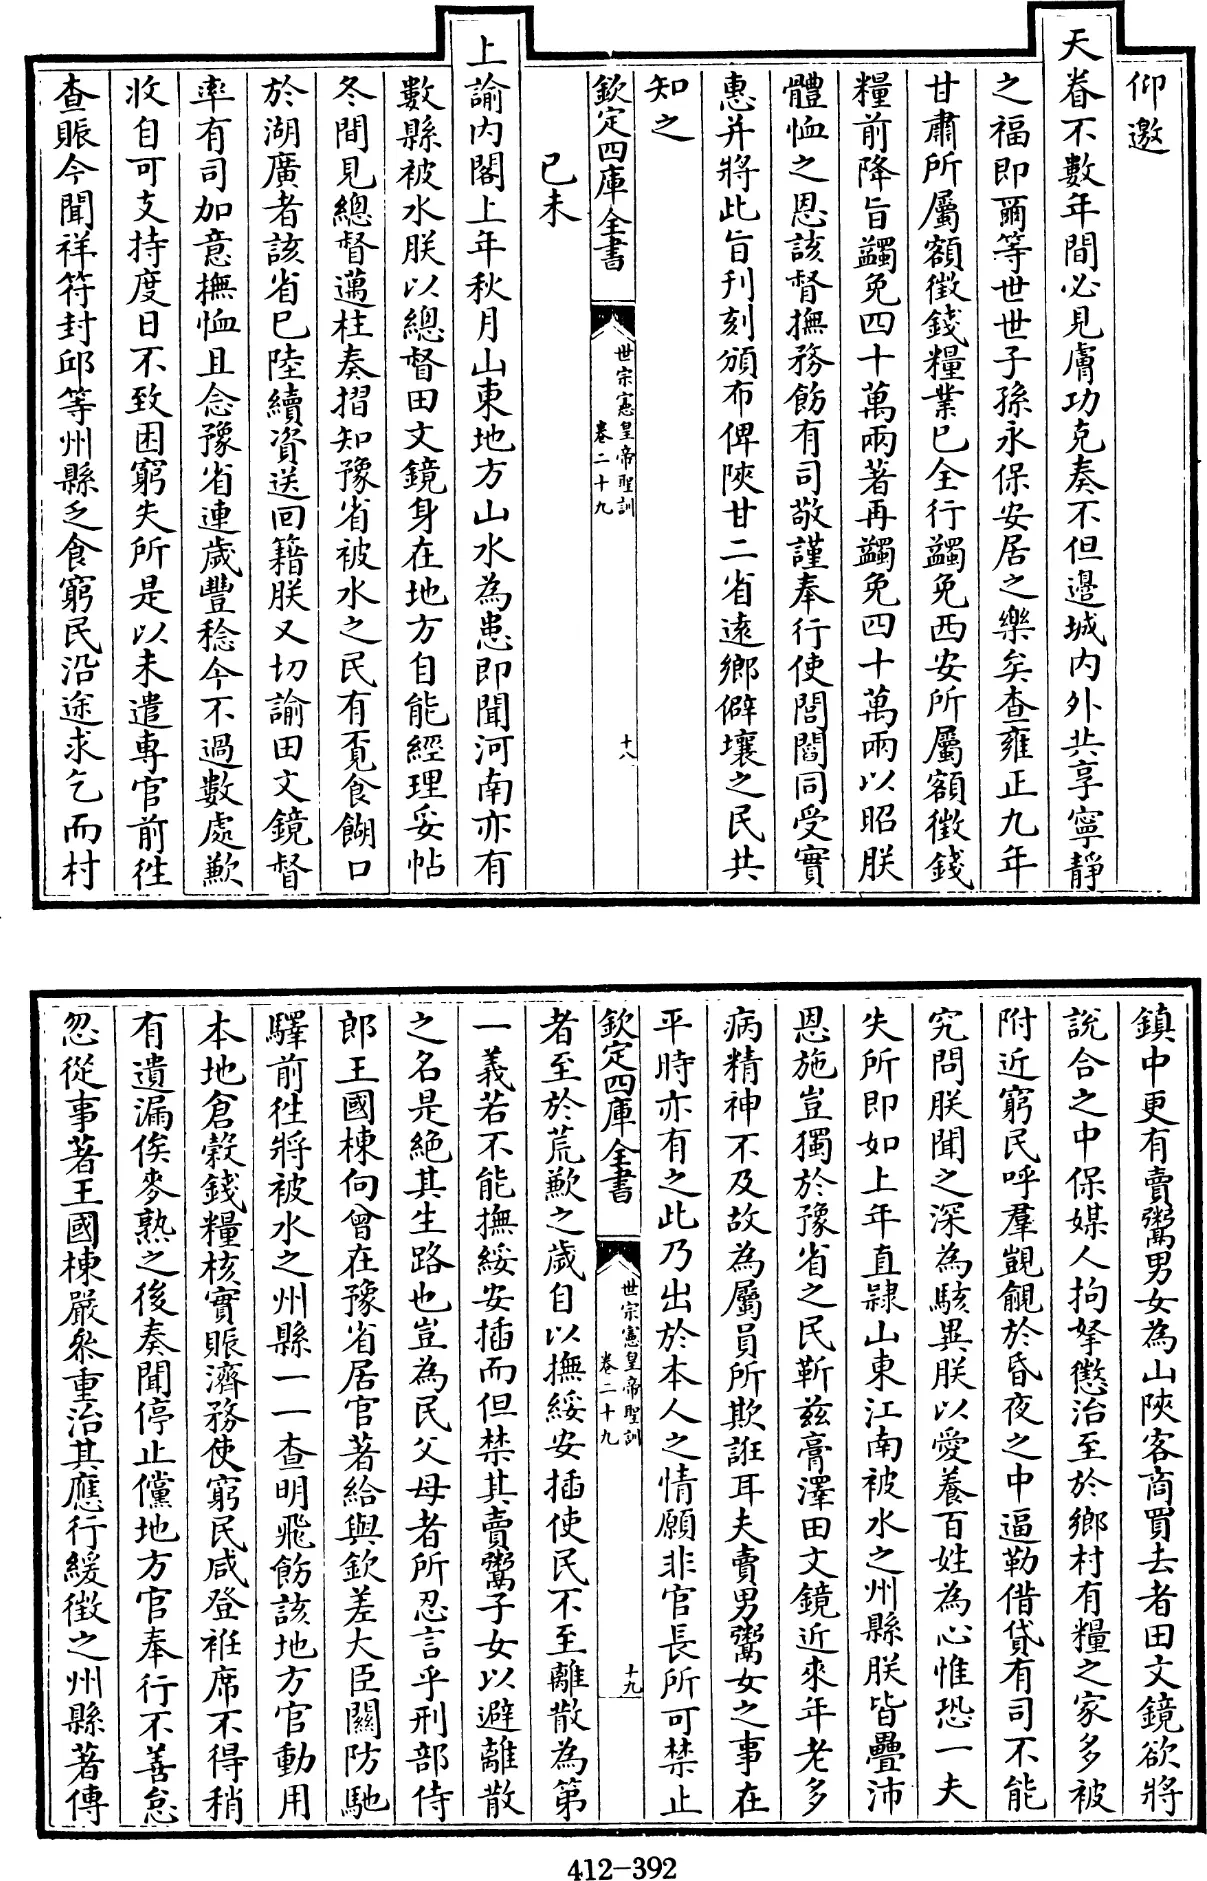 仰邀
天眷不數年間必見膚功克奏不但邉城内外共享寧靜
之福即爾等世世子孫永保安居之樂矣查雍正九年
甘肅所屬額徵錢糧業已全行蠲免西安所屬額徵錢
糧前降旨蠲免四十萬兩著再蠲免四十萬兩以昭朕
體恤之恩該督撫務飭有司敬謹奉行使閭閻同受實
惠并將此旨刋刻頒布俾陜甘二省逺鄉僻壤之民共
知之
欽定四庫全書
世宗憲皇帝聖訓
卷二十九
十八
己未
上諭内閣上年秋月山東地方山水為患即聞河南亦有
數縣被水朕以總督田文鏡身在地方自能經理妥帖
冬間見總督邁柱奏摺知豫省被水之民有覔食餬口
於湖廣者該省已陸續資送回籍朕又切諭田文鏡督
率有司加意撫恤且念豫省連歲豐稔今不過數處歉
收自可支持度日不致困窮失所是以未遣専官前徃
查賑今聞祥符封邱等州縣乏食窮民沿途求乞而村
鎮中更有賣鬻男女為山陜客商買去者田文鏡欲將
說合之中保媒人拘拏懲治至於鄉村有糧之家多被
附近窮民呼羣覬覦於昏夜之中逼勒借貸有司不能
究問朕聞之深為駭異朕以愛養百姓為心惟恐一夫
失所即如上年直隷山東江南被水之州縣朕皆疊沛
恩施豈獨於豫省之民靳兹膏澤田文鏡近來年老多
病精神不及故為屬員所欺誑耳夫賣男鬻女之事在
平時亦有之此乃出於本人之情願非官長所可禁止
欽定四庫全書
世宗憲皇帝聖訓
卷二十九
十九
者至於荒歉之歲自以撫綏安插使民不至離散為第
一義若不能撫綏安插而但禁其賣鬻子女以避離散
之名是絶其生路也豈為民父母者所忍言乎刑部侍
郎王國棟向曾在豫省居官著給與欽差大臣關防馳
驛前徃將被水之州縣一一查明飛飭該地方官動用
本地倉穀錢糧核實賑濟務使窮民咸登袵席不得稍
有遺漏俟麥熟之後奏聞停止儻地方官奉行不善怠
忽從事著王國棟嚴叅重治其應行緩徵之州縣著傳
412-392